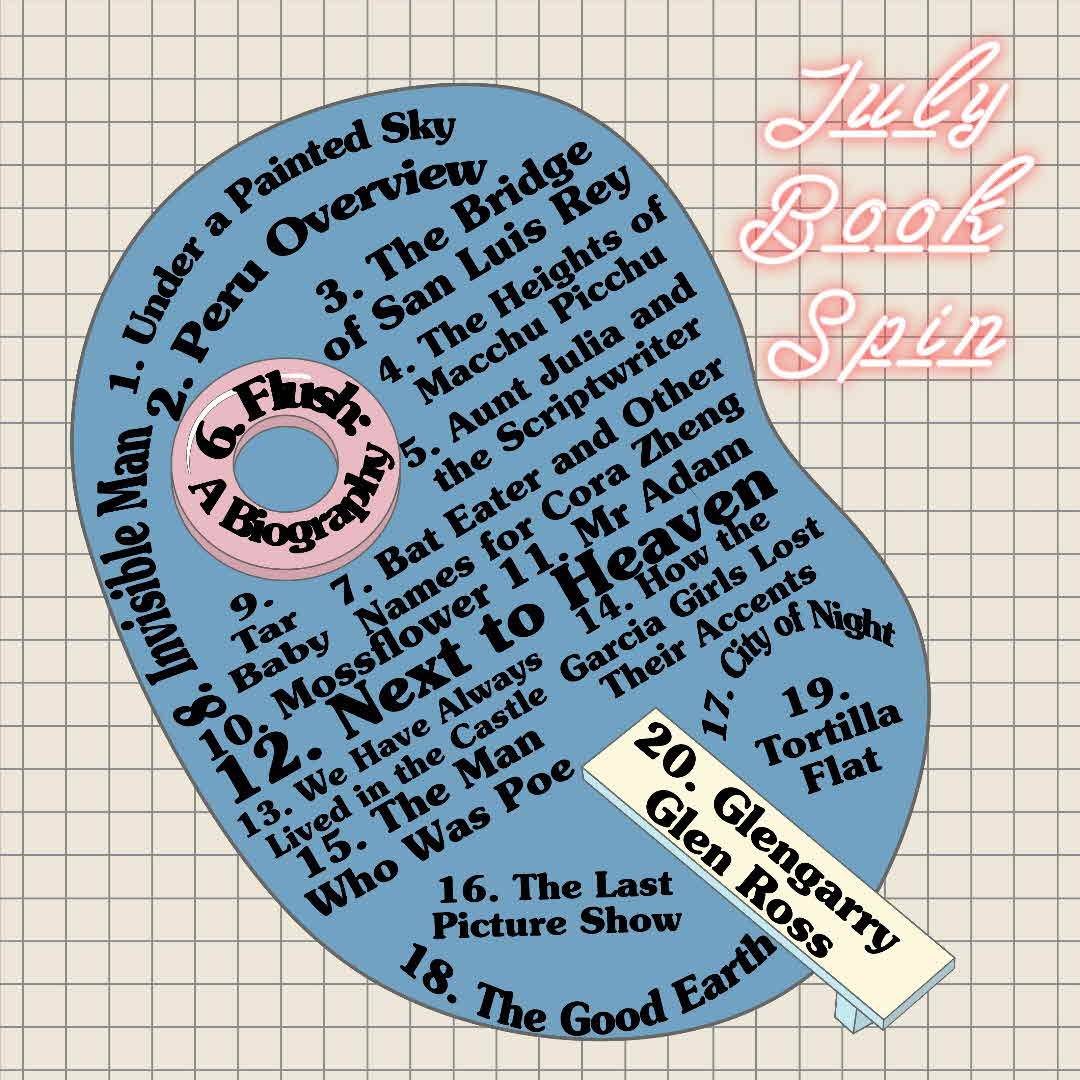 July
Book
Spin
1. Under a Painted Sky
2. Peru Overview
3. The Bridge
of San Luis Rey
4. The Heights of
Macchu Picchu
5. Aunt Julia and
the Scriptwriter
6. Flush:
A Biography
7. Bat Eater and Other
Names for Cora Zheng
8. Invisible Man
9.
Tar
Baby
10. Mossflower
11. Mr Adam
12. Next to Heaven
13. We Have Always
Lived in the Castle
14. How the
Garcia Girls Lost
Their Accents
15. The Man
Who Was Poe
16. The Last
Picture Show
17. City of Night
18. The Good Earth
19.
Tortilla
Flat
20. Glengarry
Glen Ross